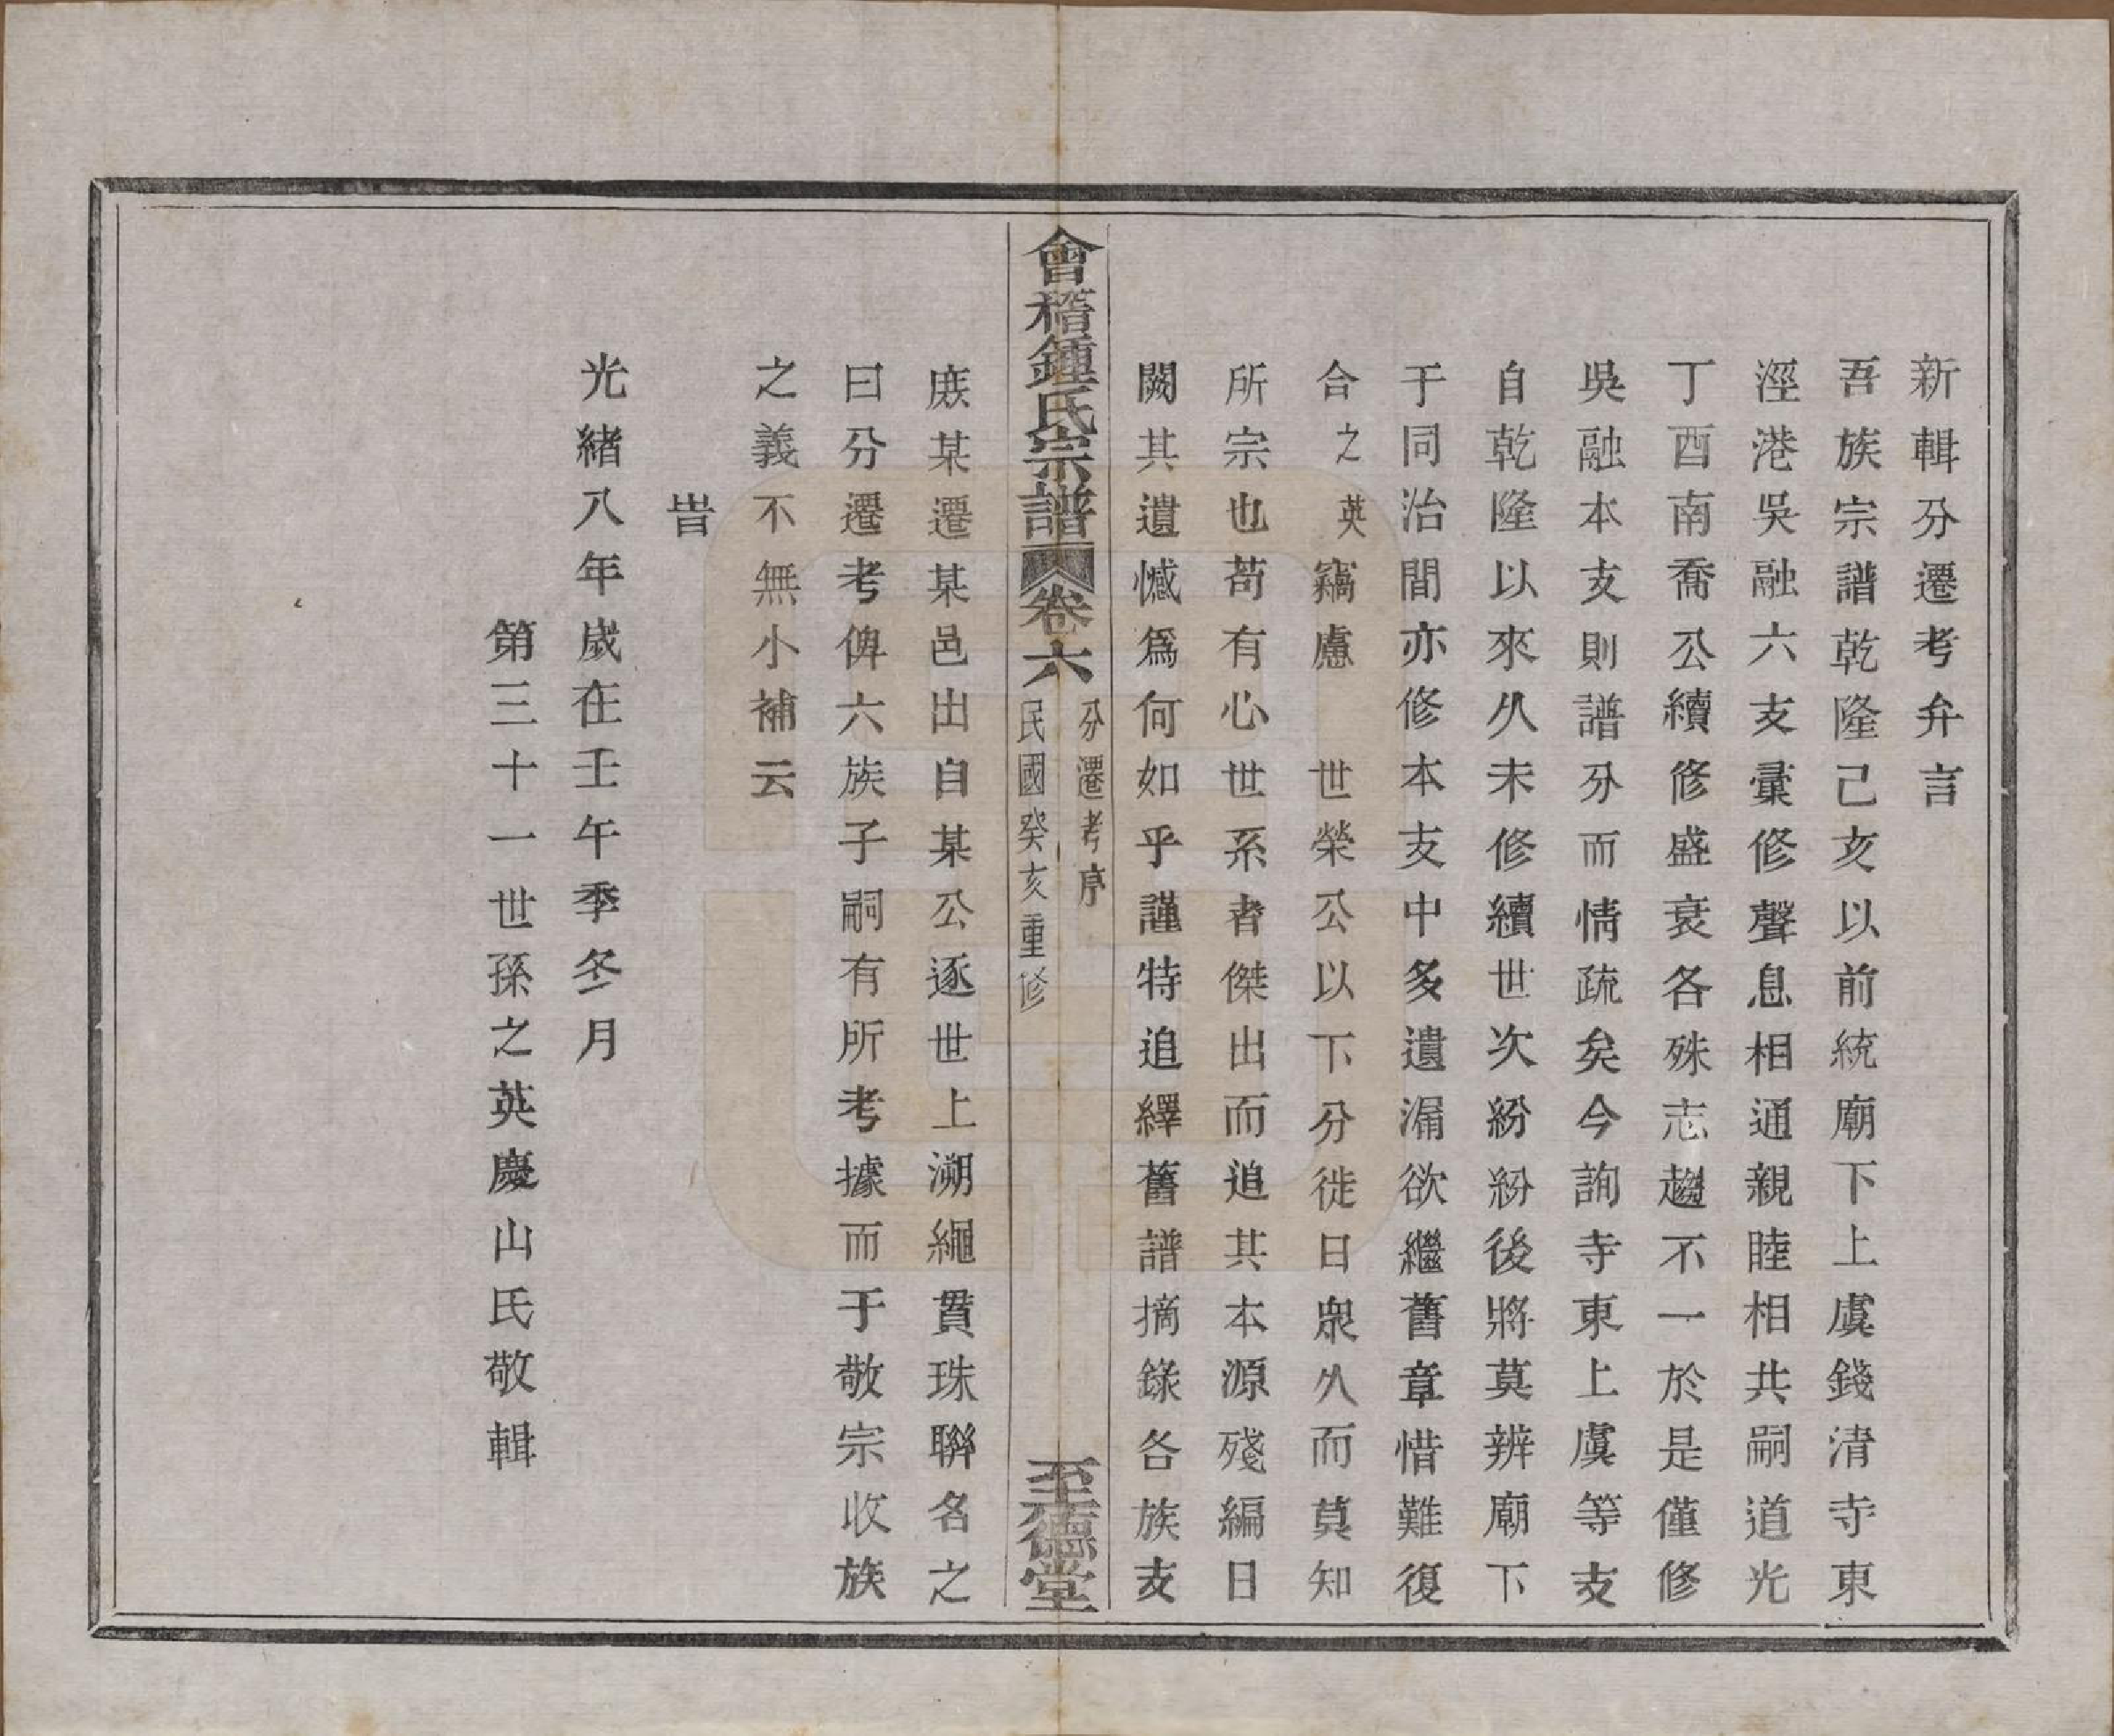 新輯分遷考弁言
吾族宗譜乾隆己亥以前統廟下上虞錢清寺東
瀅港吳融六支彙修聲息相通親睦相共嗣道光
丁酉南喬公續修盛衰各殊志趨不一於是僅修
吳融本支則譜分而情疏矣今詢寺東上虞等支
自乾隆以來久未修續世次紛紛後將莫辨廟下
于同治間亦修本支中多遺漏欲繼舊章惜難復
合之英竊慮　世榮公以下分徙日衆久而莫知
所宗也苟有心世系者傑出而追其本源殘編日
闕其遺憾爲何如乎謹特追繹舊譜摘錄各族支
會稽鍾氏宗譜
卷六
分遷考序
民國癸亥重修
至德堂
庶某遷某邑出自某公逐世上溯繩貫珠聯名之
曰分遷考俾六族子嗣有所考據而于敬宗收族
之義不無小補云
旹
光緒八年歲在壬午季冬月
第三十一世孫之英慶山氏敬輯